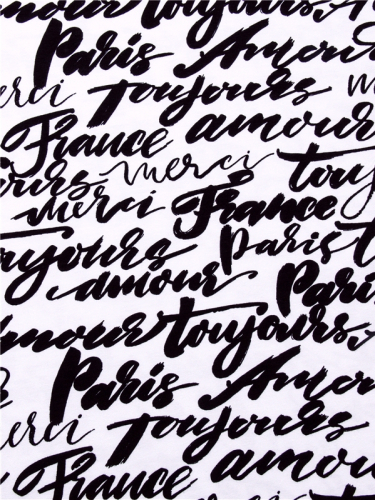 amour toujours, A
Paris Amour
merci toujours me
France amour
toujours merci touj
merci France
toujours Paris t
amour Paris
amour toujours,
Paris Amour
merci toujours
France amour